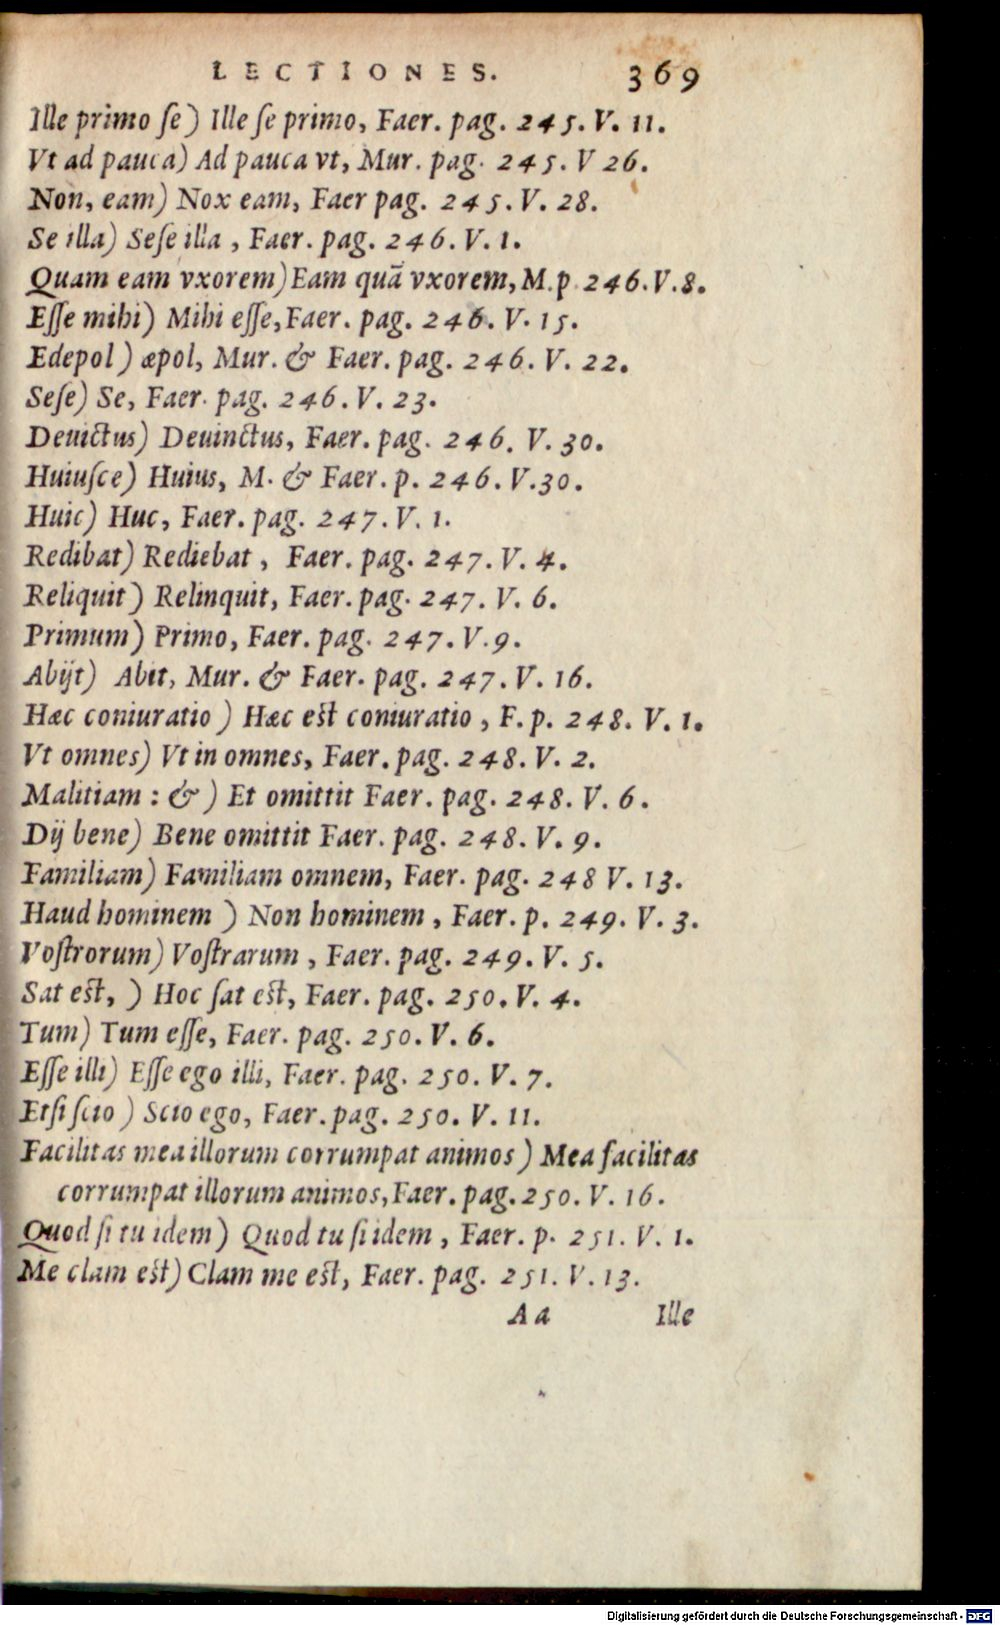 LECTIONES. 369
Ille primo ſe) Ille ſe primo, Faer. pag. 245. V. 11.
Vt ad pauca) Ad pauca vt, Mur. pag. 245. V 26.
Non, eam) Nox eam, Faer pag. 245. V. 28.
Se illa) Seſe illa, Faer. pag. 246. V. 1.
Quam eam vxorem) Eam quã vxorem, M. p. 246. V. 8.
Eſſe mihi) Mihi eſſe, Faer. pag. 246. V. 15.
Edepol) æpol, Mur. & Faer. pag. 246. V. 22.
Seſe) Se, Faer. pag. 246. V. 23.
Deuictus) Deuinctus, Faer. pag. 246. V. 30.
Huiuſce) Huius, M. & Faer. p. 246. V. 30.
Huic) Huc, Faer. pag. 247. V. 1.
Redibat) Rediebat, Faer. pag. 247. V. 4.
Reliquit) Relinquit, Faer. pag. 247. V. 6.
Primum) Primo, Faer. pag. 247. V. 9.
Abijt) Abit, Mur. & Faer. pag. 247. V. 16.
Hæc coniuratio) Hæc est coniuratio, F. p. 248. V. 1.
Vt omnes) Vt in omnes, Faer. pag. 248. V. 2.
Malitiam: &) Et omittit Faer. pag. 248. V. 6.
Dij bene) Bene omittit Faer. pag. 248. V. 9.
Familiam) Familiam omnem, Faer. pag. 248 V. 13.
Haud hominem) Non hominem, Faer. p. 249. V. 3.
Voſtrorum) Voſtrarum, Faer. pag. 249. V. 5.
Sat est,) Hoc ſat est, Faer. pag. 250. V. 4.
Tum) Tum eſſe, Faer. pag. 250. V. 6.
Eſſe illi) Eſſe ego illi, Faer. pag. 250. V. 7.
Etſi ſcio) Scio ego, Faer. pag. 250. V. 11.
Facilitas mea illorum corrumpat animos) Mea facilitas
corrumpat illorum animos, Faer. pag. 250. V. 16.
Quod ſi tu idem) Quod tu ſi idem, Faer. p. 251. V. 1.
Me clam est) Clam me est, Faer. pag. 251. V. 13.
Aa Ille
Digitalisierung gefördert durch die Deutsche Forschungsgemeinschaft - DFG